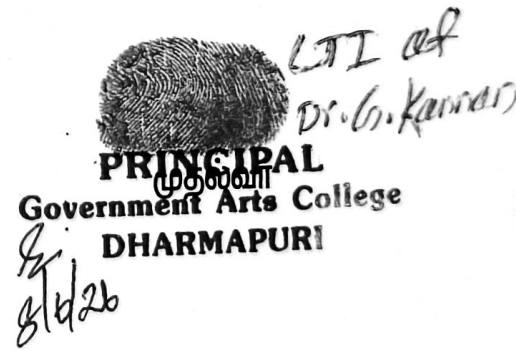 LTI of
Dr. G. Kannan
PRINCIPAL
முதல்வர்
Government Arts College
DHARMAPURI
8/6/26